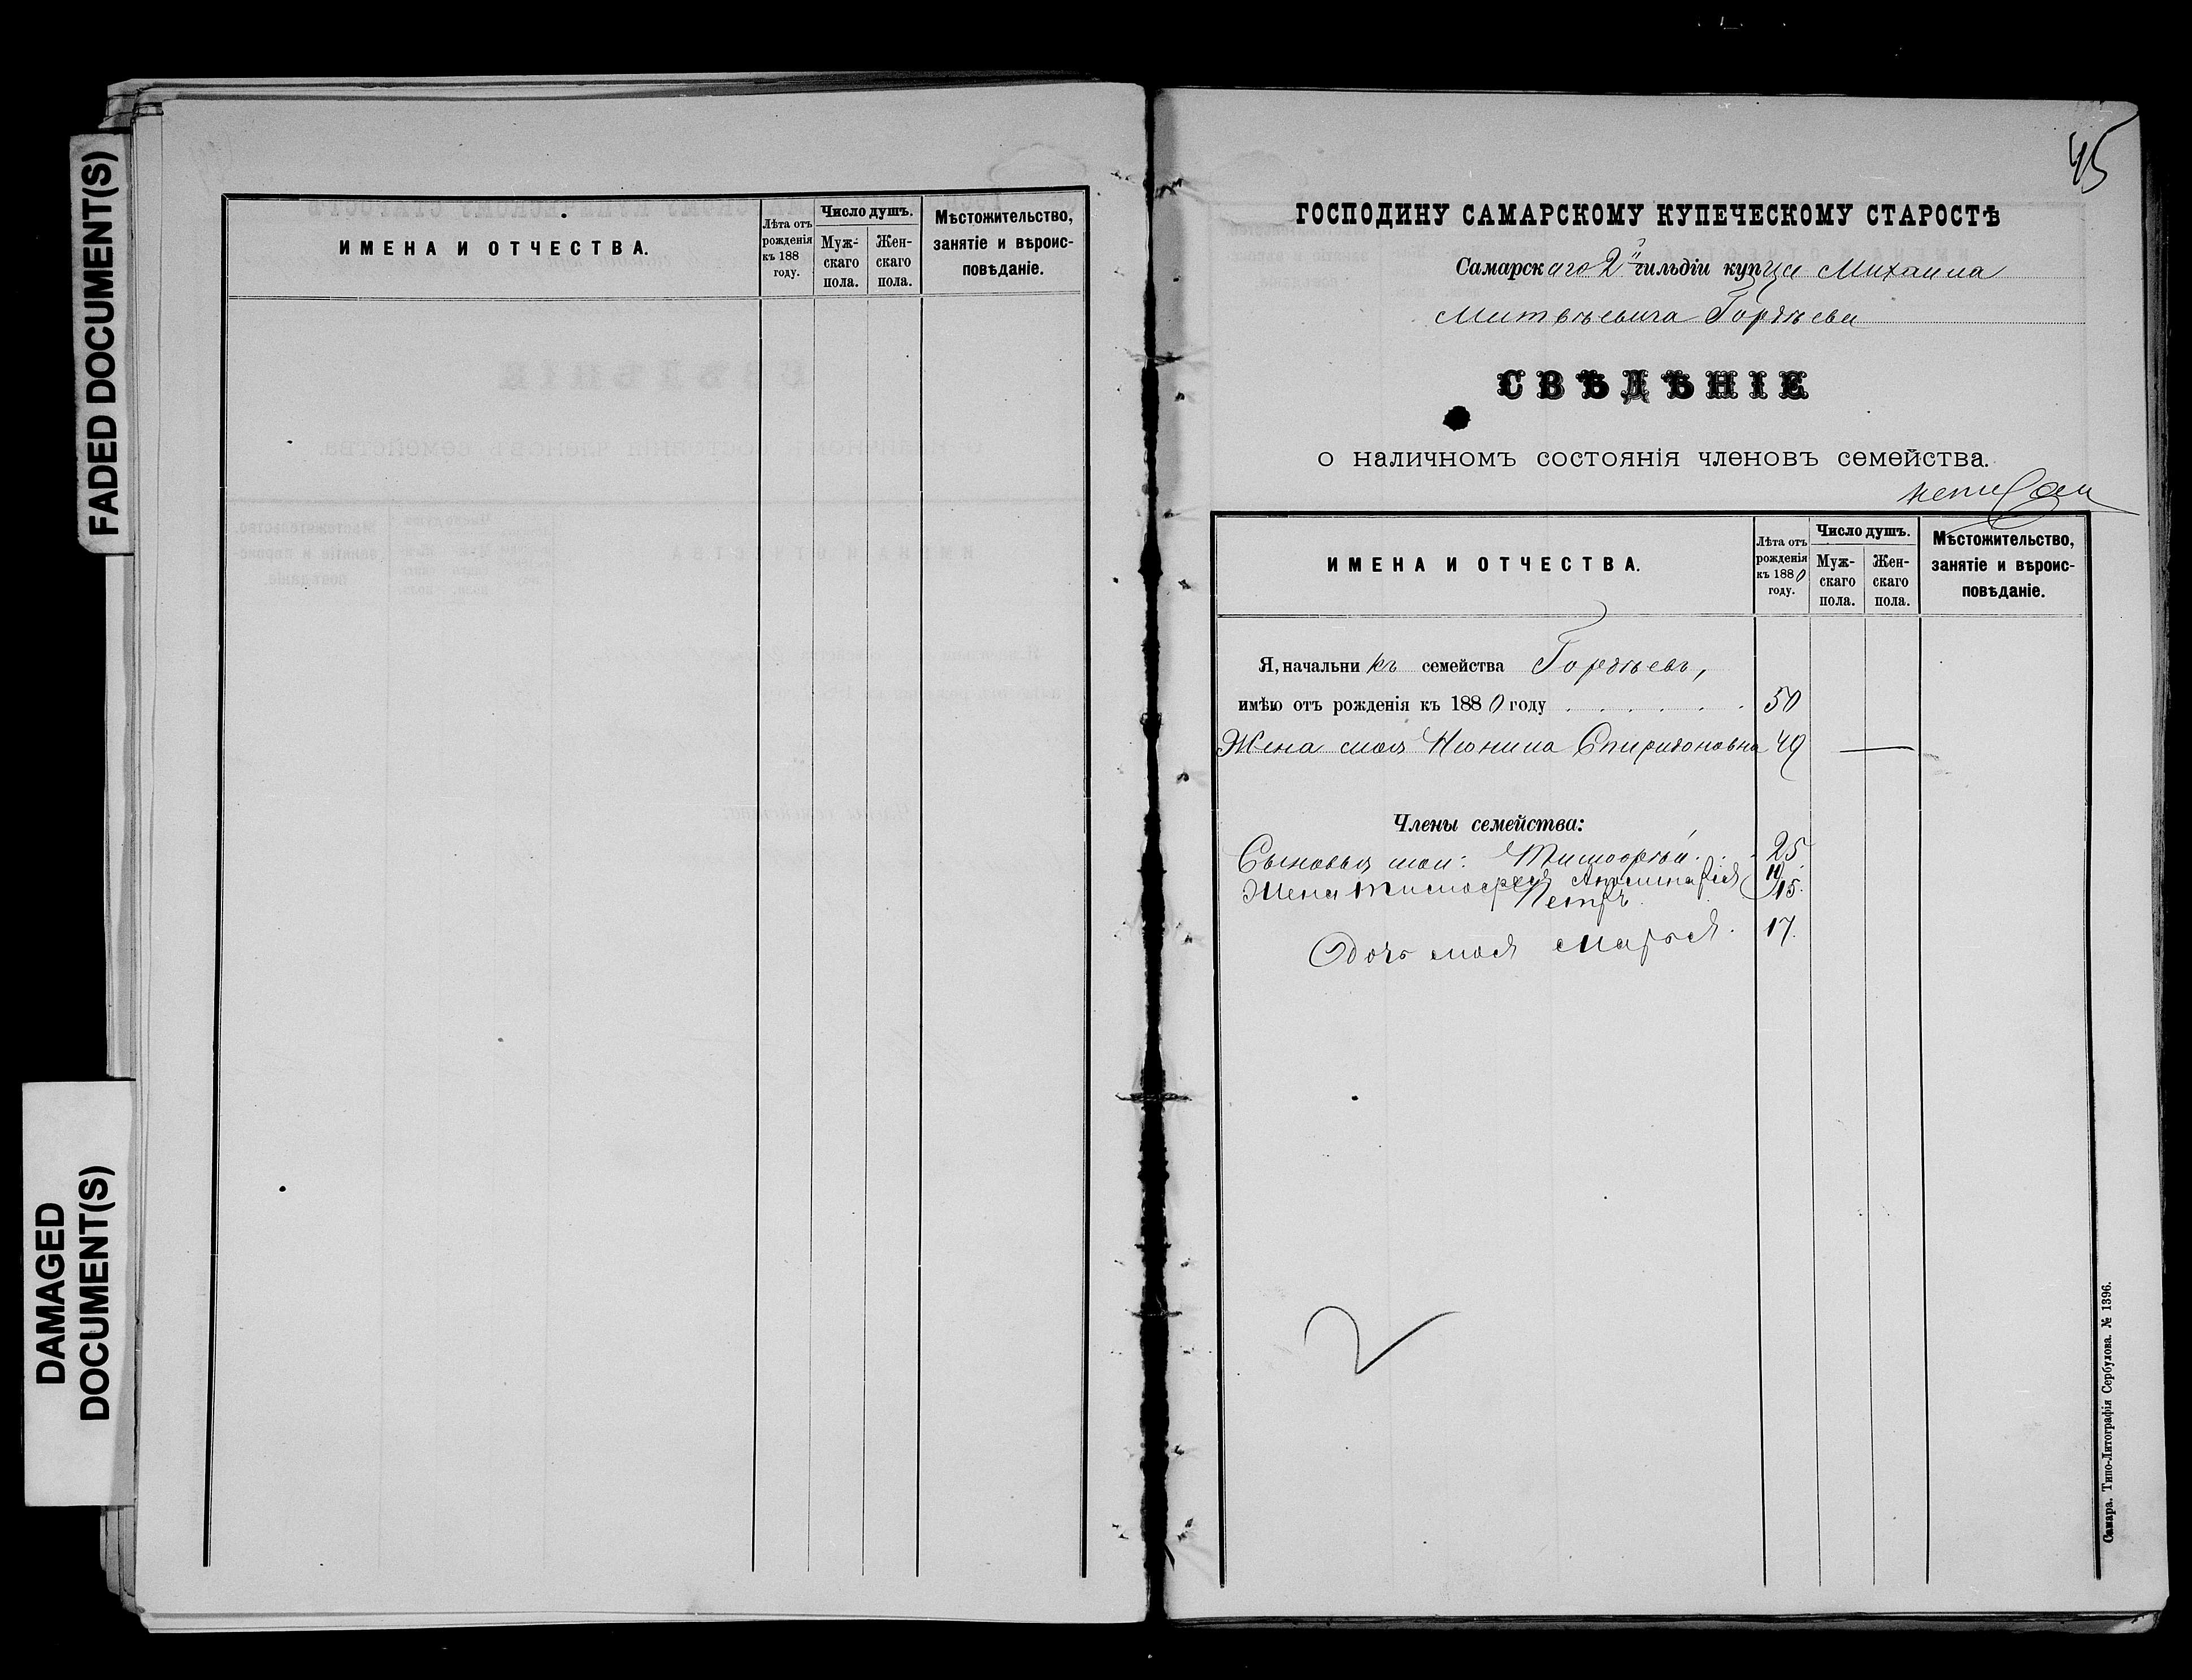 FADED DOCUMENT(S)
DAMAGED
DOCUMENT(S)
ИМЕНА И ОТЧЕСТВА.
Лѣта отъ
рожденія
къ 188
году.
Число душъ.
Муж-
скаго
пола.
Жен-
скаго
пола.
Мѣстожительство,
занятіе и вѣроис-
повѣданіе.
45
ГОСПОДИНУ САМАРСКОМУ КУПЕЧЕСКОМУ СТАРОСТѢ
Самарскаго 2й гильдіи купца Михаила
Матвѣевича Гордѣева
СВѢДѢНІЕ
о наличномъ состоянія членовъ семейства.
ИМЕНА И ОТЧЕСТВА.
Лѣта отъ
рожденія
къ 1880
году.
Число душъ.
Муж-
скаго
пола.
Жен-
скаго
пола.
Мѣстожительство,
занятіе и вѣроис-
повѣданіе.
Я, начальникъ семейства Гордѣевъ,
имѣю отъ рожденія къ 1880 году . . . . . . 50
Жена моя Спиридоновна 49 —
Члены семейства:
Сыновья мои: Тимофѣй. 25.
Жена Тимофея
Петръ 15.
Дочь моя Марья. 17.
2
Самара. Типо-Литографія Сербулова. № 1396.